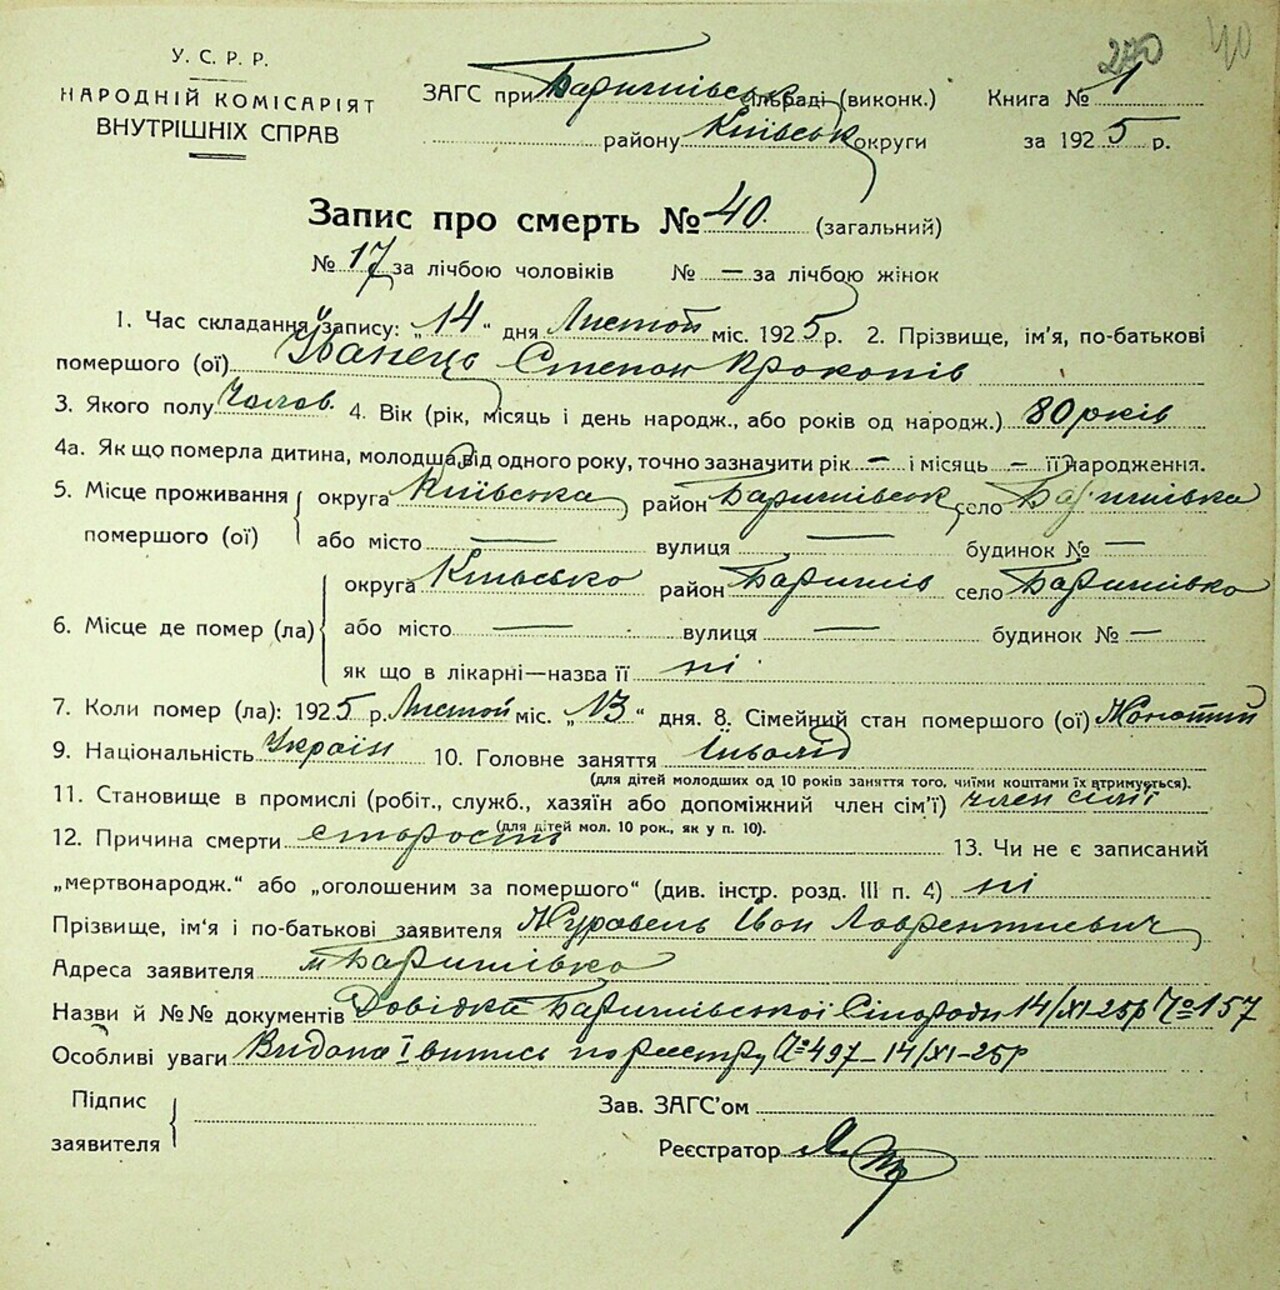 270 40
У. С. Р. Р.
НАРОДНІЙ КОМІСАРІЯТ
ВНУТРІШНІХ СПРАВ
ЗАГС при Баришівськ сільраді (виконк.)
району Київськ округи
Книга № 1
за 1925 р.
Запис про смерть № 40. (загальний)
№ 17 за лічбою чоловіків № — за лічбою жінок
1. Час складання запису: „14“ дня Листоп міс. 1925 р. 2. Прізвище, ім'я, по-батькові
помершого (ої) Іванець Степан Прокопів
3. Якого полу Чолов. 4. Вік (рік, місяць і день народж., або років од народж.) 80 років
4а. Як що померла дитина, молодша від одного року, точно зазначити рік — і місяць — її народження.
5. Місце проживання помершого (ої) округа Київська район Баришівськ село Баришівка
або місто — вулиця — будинок № —
6. Місце де помер (ла) округа Київсько район Баришів село Баришівка
або місто — вулиця — будинок № —
як що в лікарні—назва її ні
7. Коли помер (ла): 1925 р. Листоп міс. „13“ дня. 8. Сімейний стан помершого (ої) Жонатий
9. Національність Україн 10. Головне заняття Інвалід
(для дітей молодших од 10 років заняття того, чиїми коштами їх втримується).
11. Становище в промислі (робіт., служб., хазяїн або допоміжний член сім'ї) член сімї
(для дітей мол. 10 рок., як у п. 10).
12. Причина смерти старость 13. Чи не є записаний
„мертвонародж.“ або „оголошеним за помершого“ (див. інстр. розд. III п. 4) ні
Прізвище, ім'я і по-батькові заявителя Журавель Іван Лаврентиевич
Адреса заявителя м Баришівка
Назви й №№ документів Довідка Баришівської Сільради 14/XI-25р № 157
Особливі уваги Видана І випись по реєстру № 497 — 14/XI-25р
Підпис заявителя
Зав. ЗАГС'ом
Реєстратор